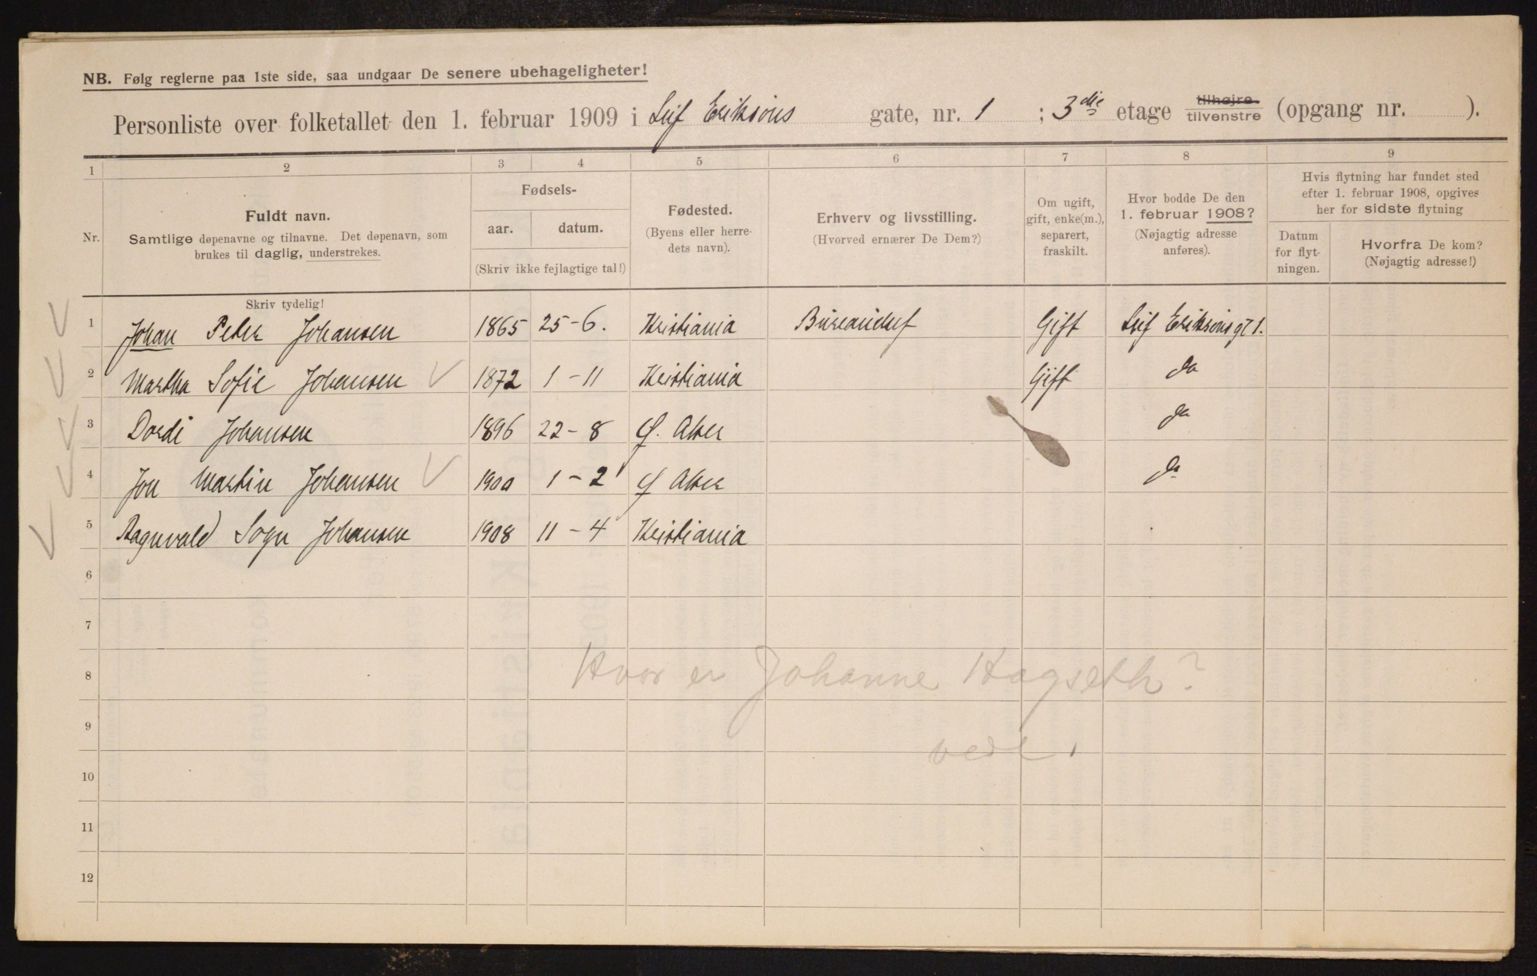 NB. Følg reglerne paa 1ste side, saa undgaar De senere ubehageligheter!
Personliste over folketallet den 1. februar 1909 i Leif Eriksons gate, nr. 1 ; 3die etage tilhøjre tilvenstre (opgang nr. ).
1 2 3 4 5 6 7 8 9
Nr.
Fuldt navn.
Samtlige døpenavne og tilnavne. Det døpenavn, som
brukes til daglig, understrekes.
Fødsels-
aar. datum.
(Skriv ikke fejlagtige tal!)
Fødested.
(Byens eller herre-
dets navn).
Erhverv og livsstilling.
(Hvorved ernærer De Dem?)
Om ugift,
gift, enke(m.),
separert,
fraskilt.
Hvor bodde De den
1. februar 1908?
(Nøjagtig adresse
anføres).
Hvis flytning har fundet sted
efter 1. februar 1908, opgives
her for sidste flytning
Datum
for flyt-
ningen.
Hvorfra De kom?
(Nøjagtig adresse!)
Skriv tydelig!
1 Johan Peder Johansen 1865 25-6. Kristiania Bureauchef Gift Leif Eriksons gt 1.
2 Martha Sofie Johansen 1872 1-11 Kristiania Gift do
3 Dordi Johansen 1896 22-8 Aker do
4 Jon Martin Johansen 1900 1-2 Aker do
5 Ragnvald Sogn Johansen 1908 11-4 Kristiania
6
7
8 Hvor er Johanne Hagseth?
9
10
11
12